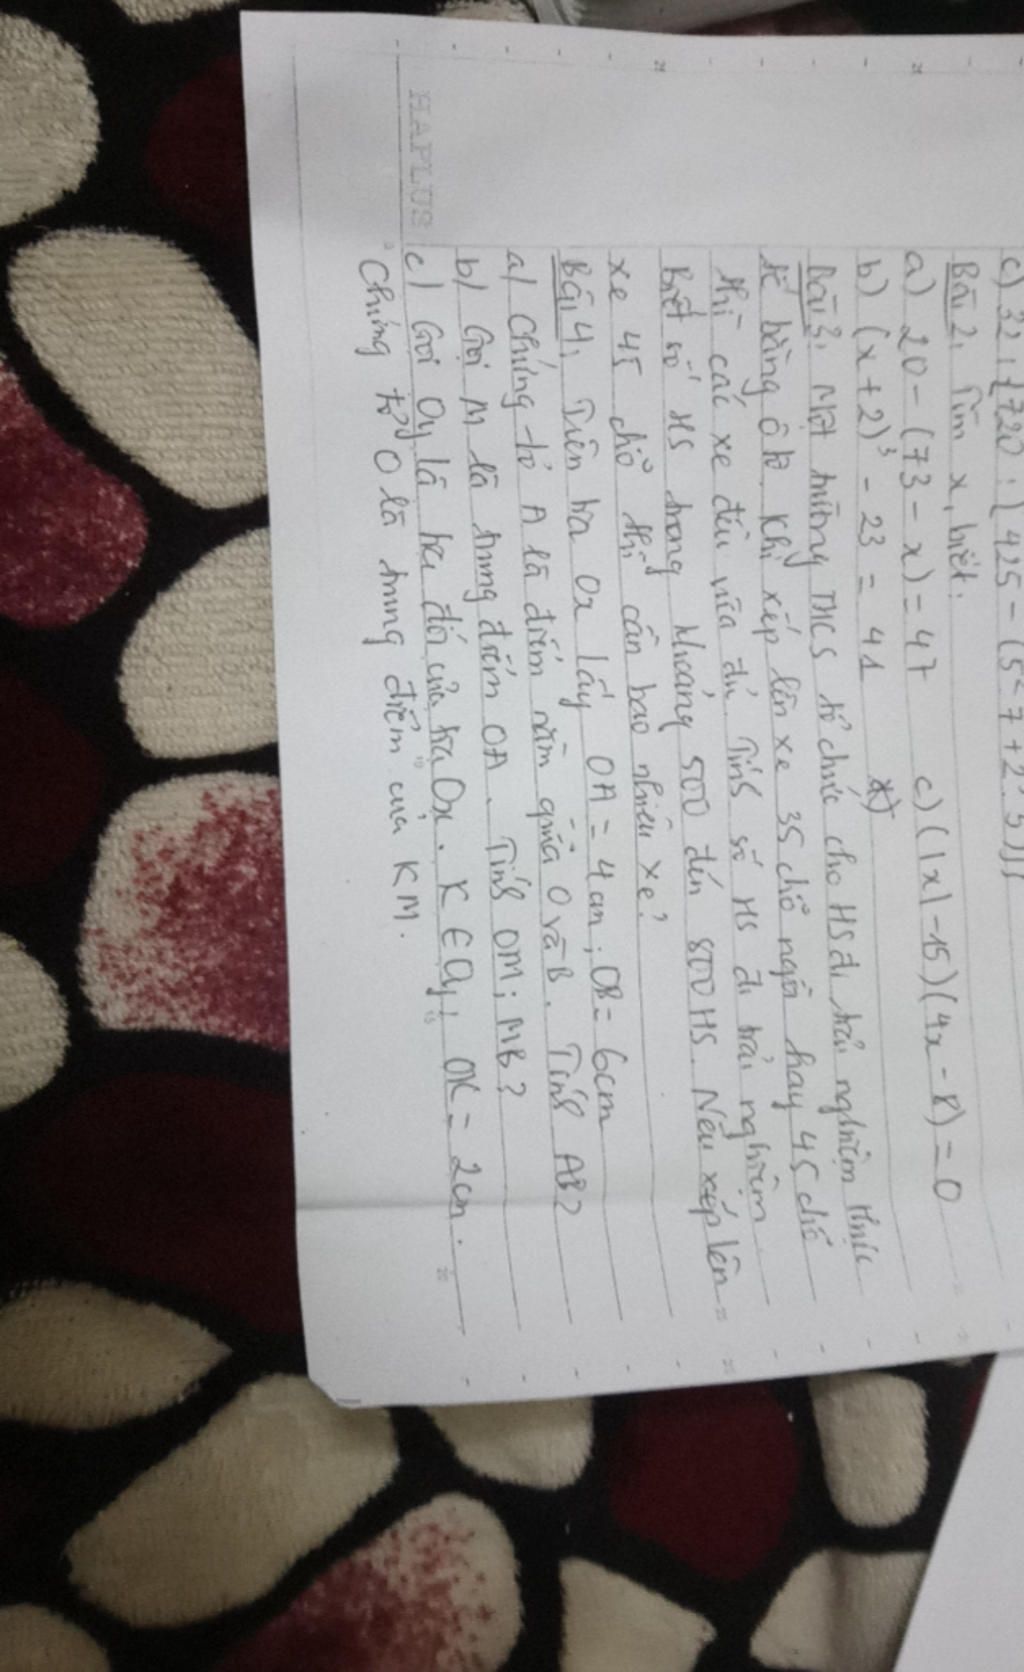 c) 32 . {720 : [425 - (5² . 7 + 2 . 5)]}
Bài 2, Tìm x, biết.
a) 20 - (73 - x) = 47 c) (|x| - 15)(4x - 8) = 0
b) (x + 2)³ - 23 = 41
Bài 3, Một trường THCS tổ chức cho HS đi trải nghiệm thực
tế bằng ô tô. Khi xếp lên xe 35 chỗ ngồi hay 45 chỗ
thì các xe đều vừa đủ. Tính số HS đi trải nghiệm
Biết số HS trong khoảng 500 đến 800 HS. Nếu xếp lên
xe 45 chỗ thì cần bao nhiêu xe?
Bài 4, Trên tia Ox lấy OA = 4cm; OB = 6cm
a) Chứng tỏ A là điểm nằm giữa O và B. Tính AB?
b) Gọi M là trung điểm OA. Tính OM; MB?
HAPLUS
c) Gọi Oy là tia đối của tia Ox. K ∈ Oy; OK = 2cm.
Chứng tỏ O là trung điểm của KM.